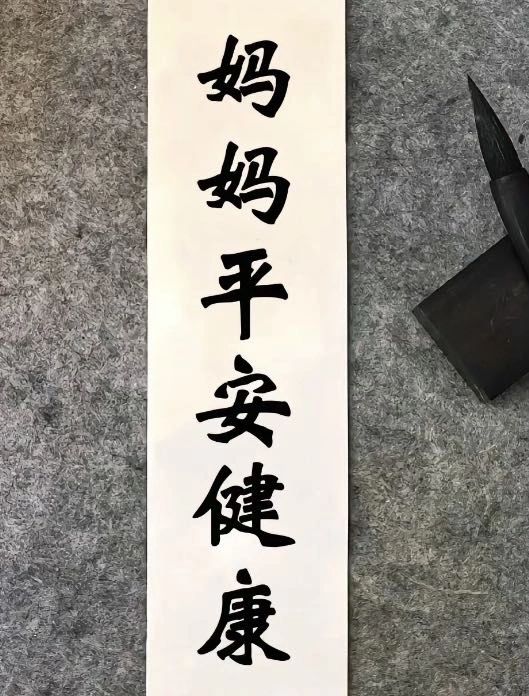 妈妈平安健康